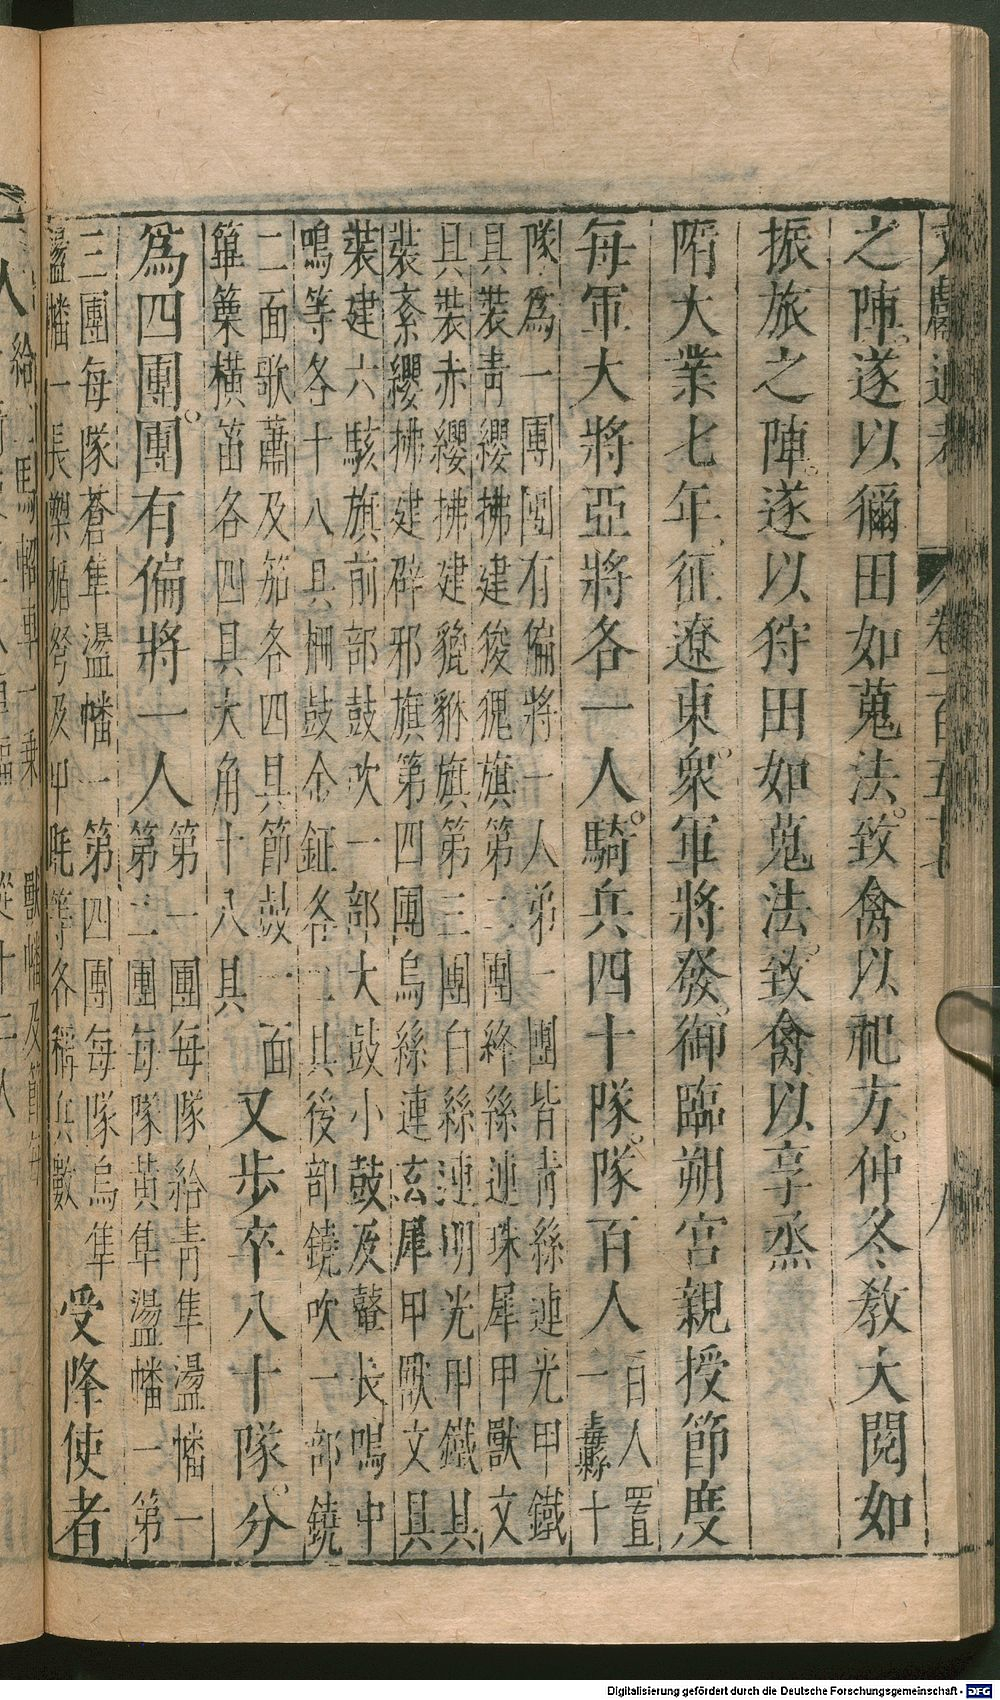 文獻通考 卷一百五十七 八
之陣遂以獮田如蒐法致禽以祀方仲冬教大閱如
振旅之陣遂以狩田如蒐法致禽以享烝
隋大業七年征遼東衆軍將發御臨朔宮親授節度
每軍大將亞將各一人騎兵四十隊隊百人
百人置
一毒縣十
隊為一團團有偏將一人弟一團皆青絲連光甲鐵
具裝青纓拂建狻猊旗第二團絳絲連珠犀甲獸文
具裝赤纓拂建貔貅旗第三團白絲連明光甲鐵具
裝素纓拂建辟邪旗第四團烏絲連玄犀甲獸文具
裝建六駁旗前部鼓吹一部大鼓小鼓及鼙長鳴中
鳴等各十八具棡鼓金鉦各二具後部鐃吹一部鐃
二面歌蕭及笳各四具節鼓一面
篳篥橫笛各四具大角十八具
又步卒八十隊分
為四團團有偏將一人
第一團每隊給青隼盪幡一
第二團每隊黃隼盪幡一第
三團每隊蒼隼盪幡一第四團每隊烏隼
盪幡一長槊楯弩及甲毦等各稱兵數
受降使者
一人給二馬軺車一乘
Digitalisierung gefördert durch die Deutsche Forschungsgemeinschaft - DFG